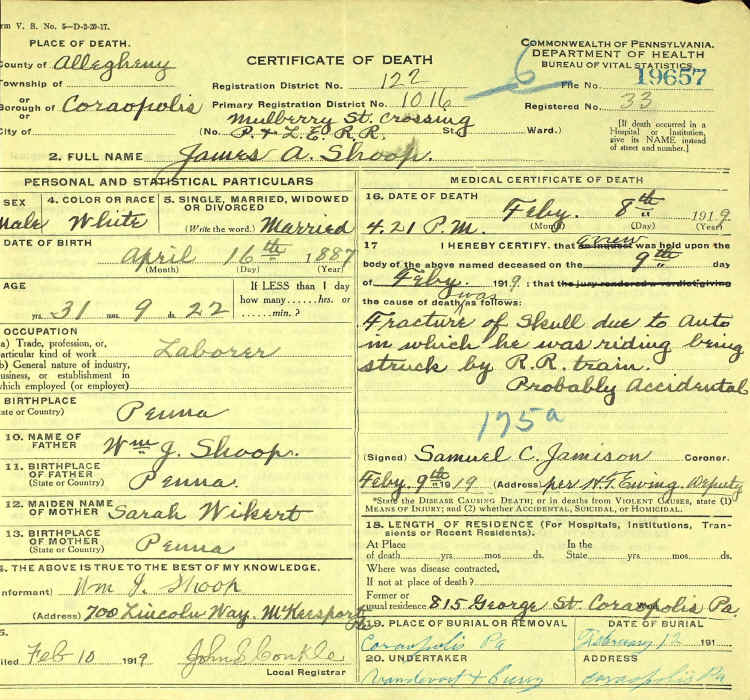 rm V. S. No. 5—D-3-20-17.
PLACE OF DEATH.
County of Allegheny
Township of
or
Borough of Coraopolis
or
City of
CERTIFICATE OF DEATH
Registration District No. 122
Primary Registration District No. 1016
Mulberry St. Crossing
(No. P. & L. E. R.R. St. Ward.)
COMMONWEALTH OF PENNSYLVANIA.
DEPARTMENT OF HEALTH
BUREAU OF VITAL STATISTICS.
6
File No. 19657
Registered No. 33
[If death occurred in a
Hospital or Institution,
give its NAME instead
of street and number.]
2. FULL NAME James A. Shoop.
PERSONAL AND STATISTICAL PARTICULARS
SEX
Male
4. COLOR OR RACE
White
5. SINGLE, MARRIED, WIDOWED
OR DIVORCED
(Write the word.) Married
DATE OF BIRTH
April 16th 1887
(Month) (Day) (Year)
AGE
yrs. 31 mos. 9 ds. 22
If LESS than 1 day
how many......hrs. or
......min.?
OCCUPATION
a) Trade, profession, or,
particular kind of work Laborer
b) General nature of industry,
business, or establishment in
which employed (or employer)
BIRTHPLACE
(State or Country) Penna
10. NAME OF
FATHER Wm J. Shoop.
11. BIRTHPLACE
OF FATHER
(State or Country) Penna.
12. MAIDEN NAME
OF MOTHER Sarah Wikert
13. BIRTHPLACE
OF MOTHER
(State or Country) Penna
. THE ABOVE IS TRUE TO THE BEST OF MY KNOWLEDGE.
(Informant) Wm J. Shoop
(Address) 700 Lincoln Way. McKeesport Pa
5.
Filed Feb 10 1919 John E Conkle
Local Registrar
MEDICAL CERTIFICATE OF DEATH
16. DATE OF DEATH
4.21 P.M. Feby. 8th 1919
(Month) (Day) (Year)
17 I HEREBY CERTIFY, that a view an inquest was held upon the
body of the above named deceased on the 9th day
of Feby. 1919: that the jury rendered a verdict giving
the cause of death was as follows:
Fracture of Skull due to Auto
in which he was riding being
struck by R.R. train.
Probably Accidental
175a
(Signed) Samuel C. Jamison Coroner.
Feby. 9th 1919 (Address) per H.T. Ewing. Deputy
*State the DISEASE CAUSING DEATH; or in deaths from VIOLENT CAUSES, state (1)
MEANS OF INJURY; and (2) whether ACCIDENTAL, SUICIDAL, or HOMICIDAL.
18. LENGTH OF RESIDENCE (For Hospitals, Institutions, Tran-
sients or Recent Residents).
At Place
of death yrs mos. ds.
In the
State yrs mos. ds.
Where was disease contracted,
If not at place of death?
Former or
usual residence 815 George St. Coraopolis Pa.
19. PLACE OF BURIAL OR REMOVAL
Coraopolis Pa
DATE OF BURIAL
February 12 191
20. UNDERTAKER
ADDRESS
Coraopolis Pa